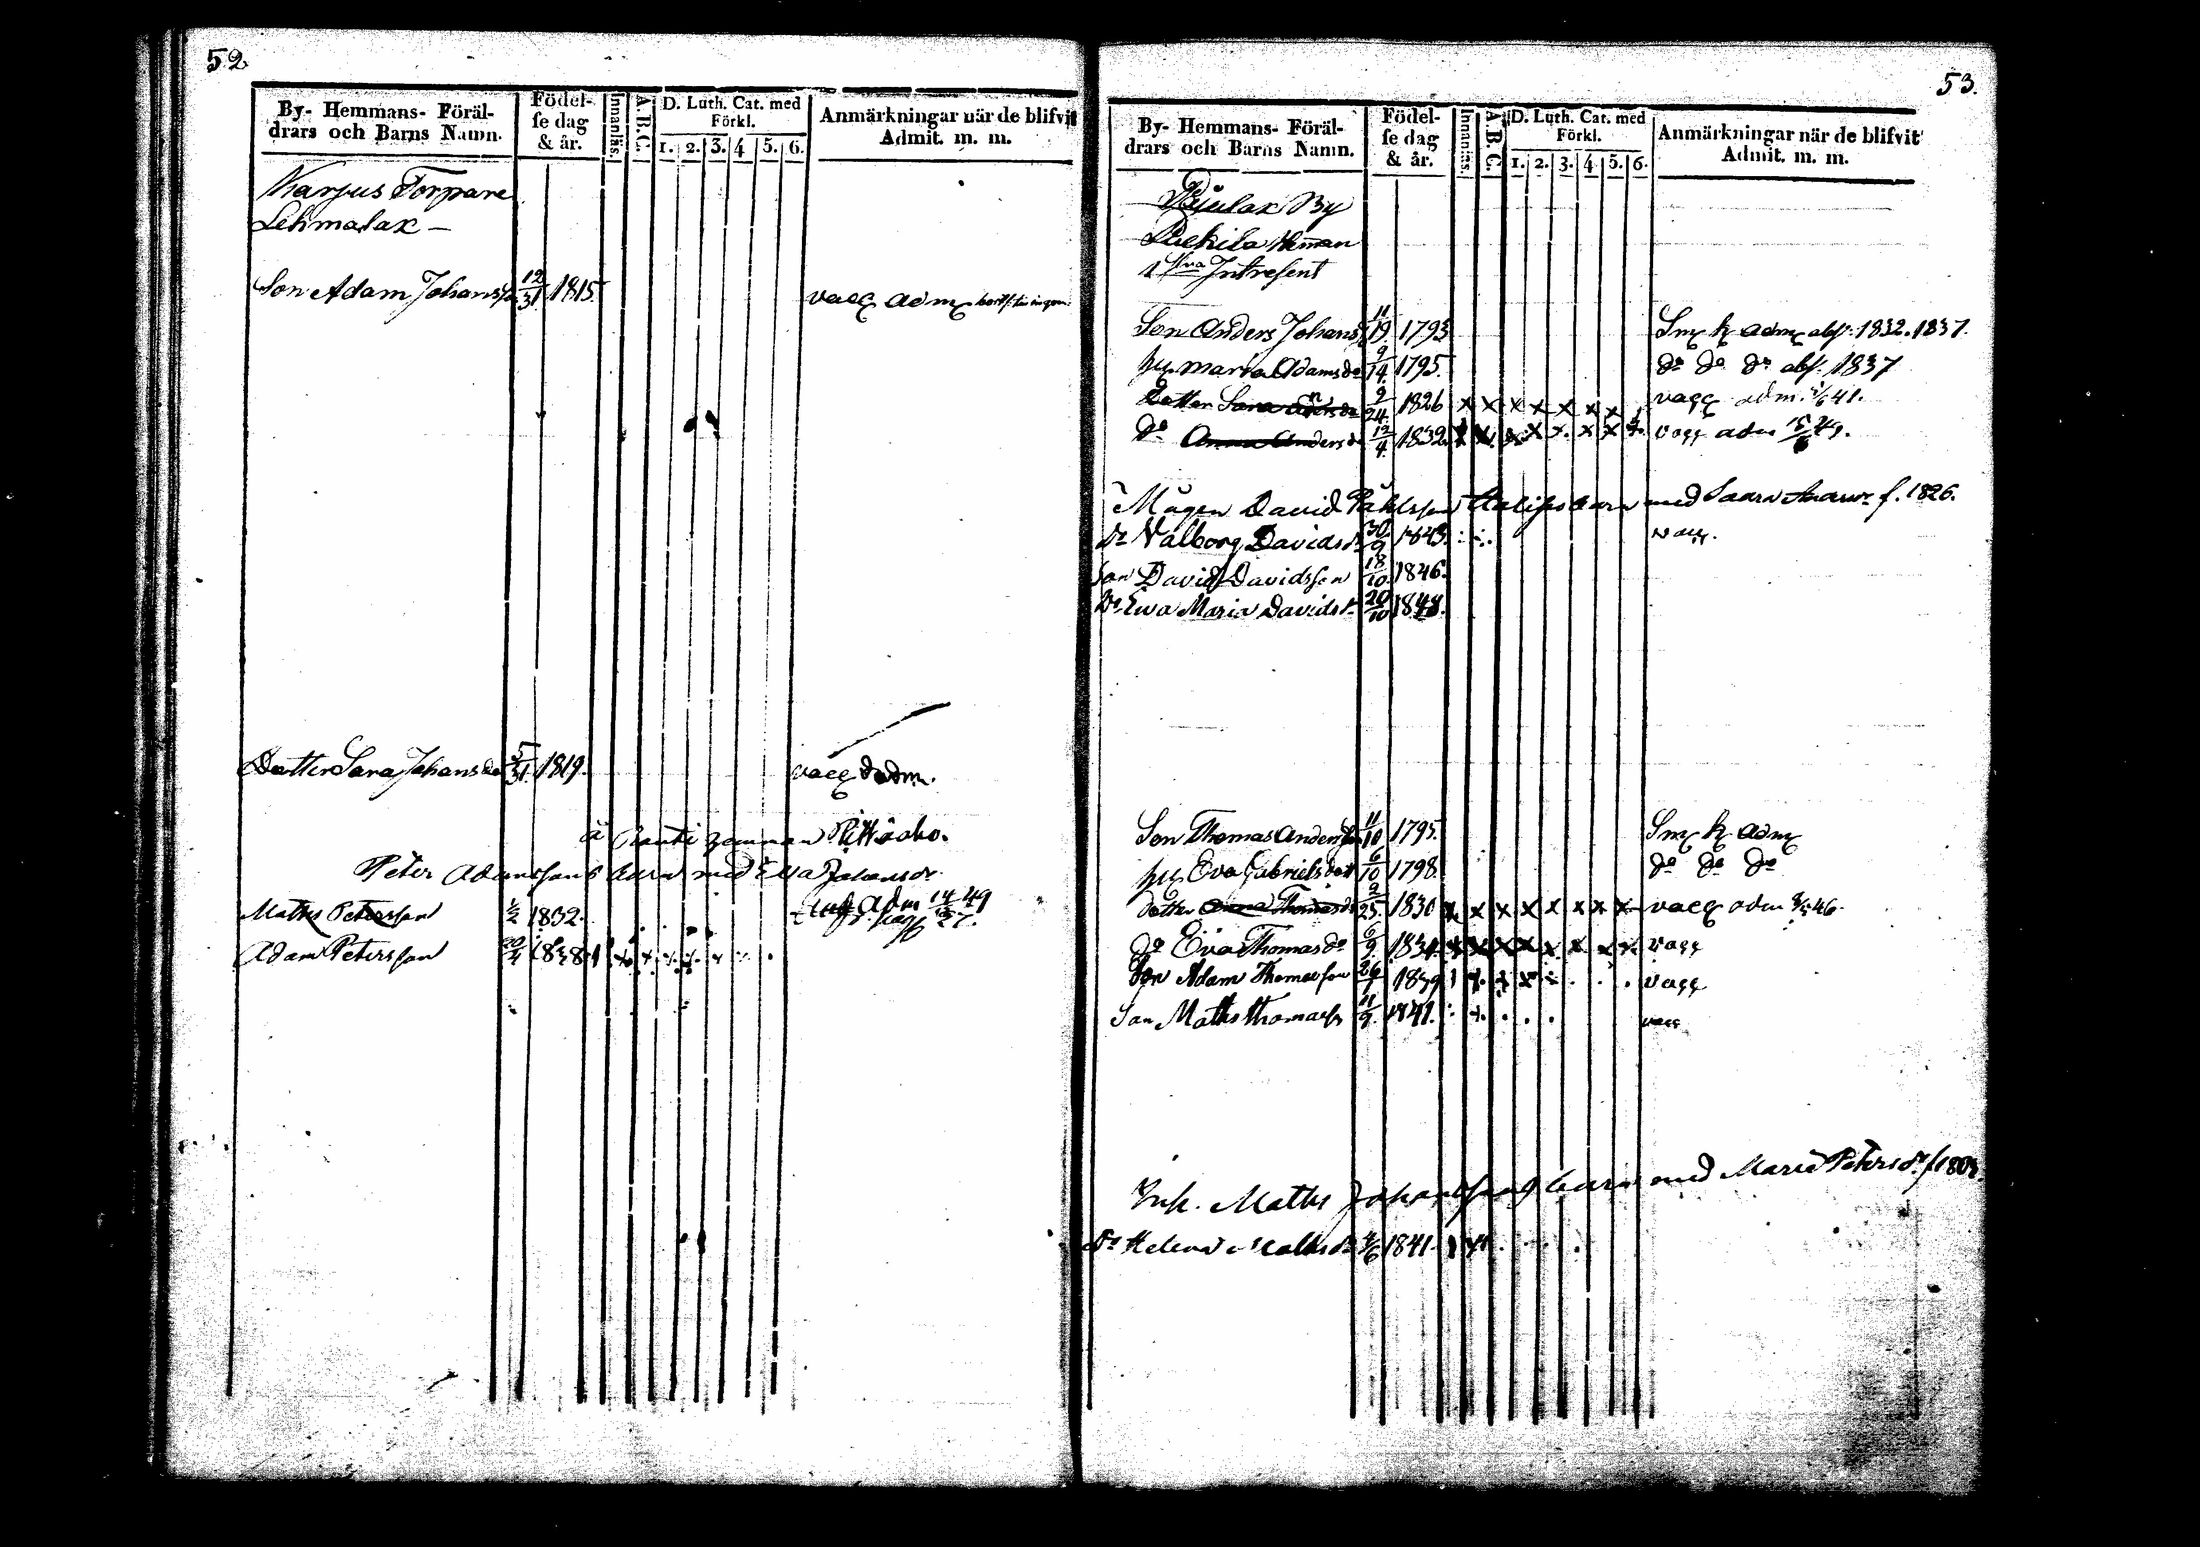 52
By- Hemmans- Föräl-
drars och Barns Namn.
Födel-
se dag
& år.
Innanläs.
A.B.C.
D. Luth. Cat. med
Förkl.
1. 2. 3. 4 5. 6.
Anmärkningar när de blifvit
Admit. m. m.
Karjus Torpare
Lehmalax –
Son Adam Johans 12/31 1815. vacc adm
Dotter Sara Johansdo 5/31 1819. vacc adm.
å zemman
Peter Adamssons barn med Eva Johansdr
Matts Petersson 1/2 1832. adm 14/6 49
Adam Petersson 20/4 1838
53.
By- Hemmans- Föräl-
drars och Barns Namn.
Födel-
se dag
& år.
Innanläs.
A.B.C.
D. Luth. Cat. med
Förkl.
1. 2. 3. 4 5. 6.
Anmärkningar när de blifvit
Admit. m. m.
By
Heman
1 Intresent
Son Anders Johans 11/19 1793 Smk k adm abs. 1832. 1837.
hu Maria Adamsdo 9/14 1795. do do do abs. 1837
Dotter Sara Andersdo 9/24 1826 x x x x x x x vacc adm. 41.
do Anna Andersdo 12/4 1832 x x x x x x x vacc adm 49.
Mågen David Påhlsson barn med Saara f. 1826.
Dr Valborg Davidsdr 30/9 1843. vacc.
Son David Davidsson 18/10 1846.
Dr Eva Maria Davidsdr 20/10 1848.
Son Thomas Anderss 11/10 1795. Smk k adm
hu Eva Gabrielsdott 6/10 1798 do do do
dotter Anna Thomasdo 9/25. 1830 x x x x x x x x vacc adm 46.
do Eva Thomasdo 6/9. 1834 x x x x x x x x vacc
Son Adam Thomasson 1839 vacc
Son Matts Thomass 11/9. 1841. vacc
Inh. Matts Johanssons barn med Maria Petersdr f 1803.
Dr Helena Mattsdr 4/6 1841.